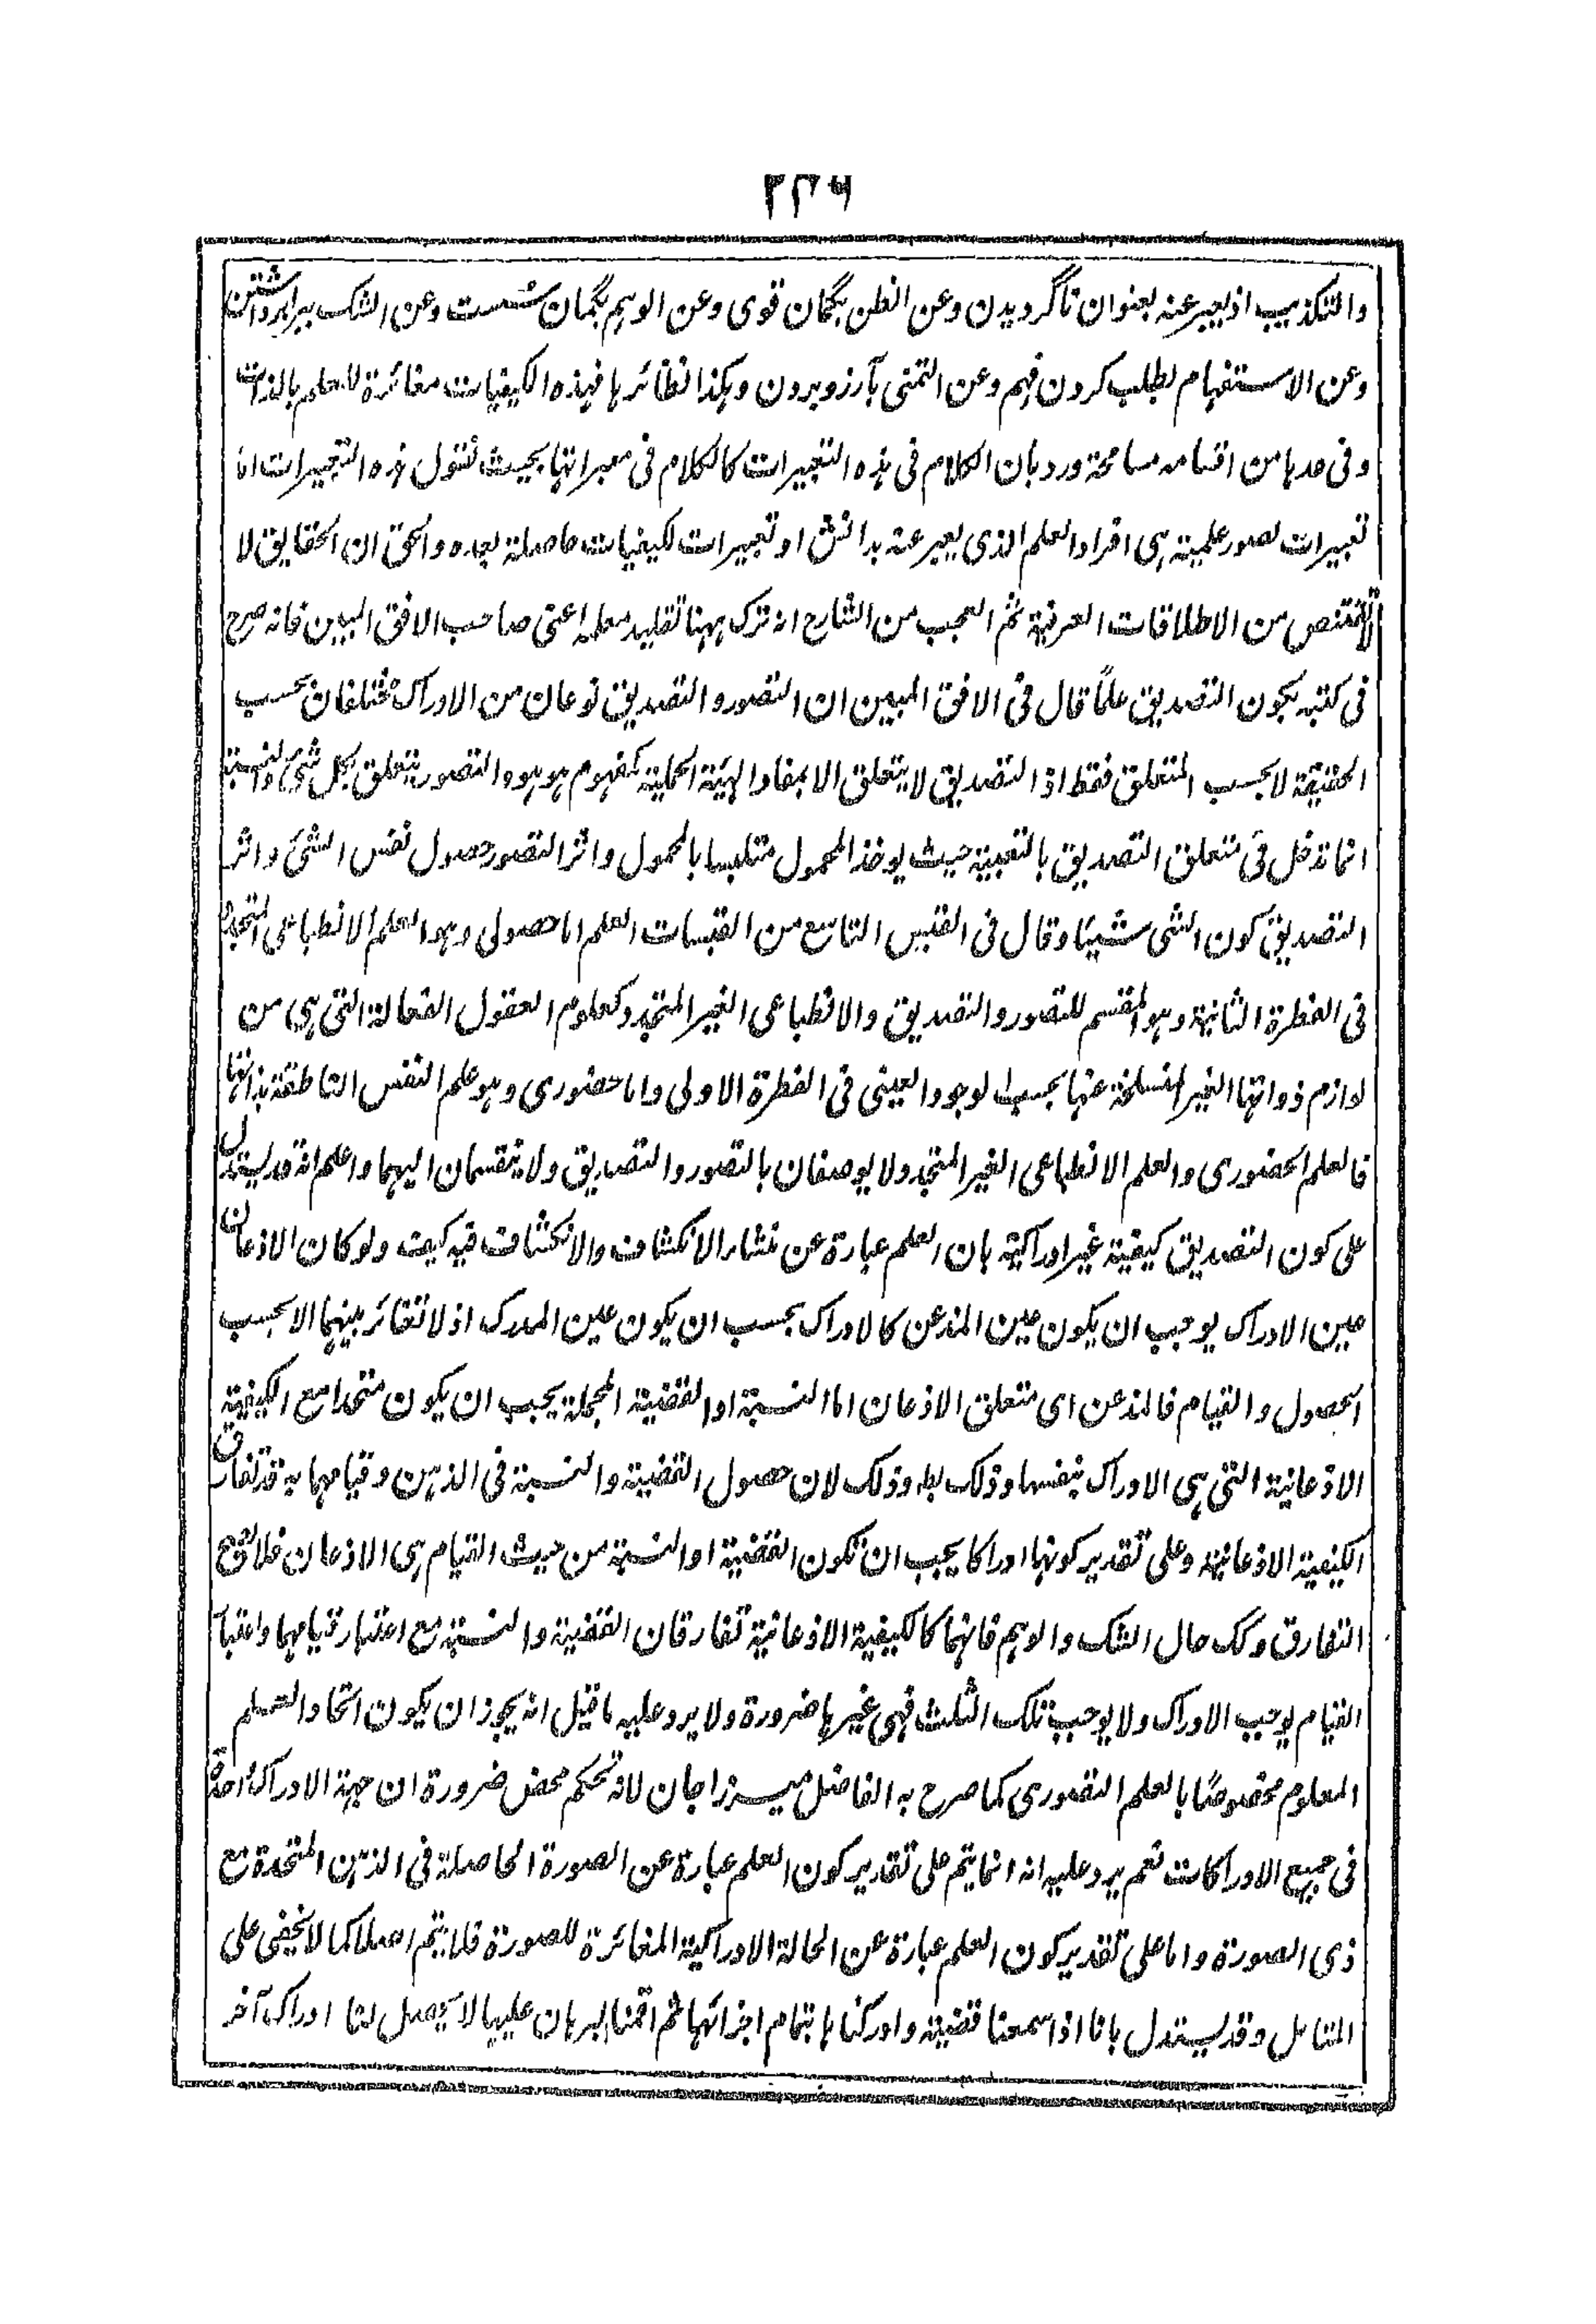 ۲۳۶
والتكذيب اذ يعبر عنه بعنوان ناگرويدن وعن الظن بگمان قوى وعن الوهم بگمان سست وعن الشك
وعن الاستفهام بطلب كردن فهم وعن التمنى بآرزو بردن وهكذا نظائرها فهذه الكيفيات مغائرة للعلم بالذات
وفى عدها من اقسامه مسامحة ورد بان الكلام فى هذه التعبيرات كالكلام فى معبراتها بحيث نقول هذه التعبيرات اما
تعبيرات لصور علمية هى افراد العلم الذى يعبر عنه بدانش او تعبيرات لكيفيات حاصلة بعده والحق ان الحقايق لا
تقتنص من الاطلاقات العرفية ثم العجب من الشارح انه ترك ههنا تقليد معلمه اعنى صاحب الافق المبين فانه صرح
فى كتبه بكون التصديق علمًا قال فى الافق المبين ان التصور والتصديق نوعان من الادراك مختلفان بحسب
الحقيقة لا بحسب المتعلق فقط اذ التصديق لا يتعلق الا بمفاد الهيئة الحملية كمفهوم هو هو والتصور يتعلق بكل شئ والنسبة
انما تدخل فى متعلق التصديق بالتبعية حيث يوخذ المحمول متلبسا بالمحمول واثر التصور حصول نفس الشئ واثر
التصديق كون الشى شيئا وقال فى القبس التاسع من القبسات العلم اما حصولى وهو العلم الانطباعى المتجدد
فى الفطرة الثانية وهو المقسم للتصور والتصديق والانطباعى الغير المتجدد كعلوم العقول الفعالة التى هى من
لوازم ذواتها الغير المنسلخة عنها بحسب الوجود العينى فى الفطرة الاولى واما حضورى وهو علم النفس الناطقة بذاتها
فالعلم الحضورى والعلم الانطباعى الغير المتجدد لا يوصفان بالتصور والتصديق ولا ينقسمان اليهما واعلم انه قد يستدل
على كون التصديق كيفية غير ادراكية بان العلم عبارة عن منشاء الانكشاف والانكشاف فيه كيف ولو كان الاذعان
عين الادراك يوجب ان يكون عين المذعن كالادراك بحسب ان يكون عين المدرك اذ لا تغائر بينهما الا بحسب
الحصول والقيام فالمذعن اى متعلق الاذعان اما النسبة او القضية المجملة يجب ان يكون متحدا مع الكيفية
الاذعانية التى هى الادراك بنفسها وذلك بط وذلك لان حصول القضية والنسبة فى الذهن وقيامهما به قد تفارق
الكيفية الاذعانية وعلى تقدير كونها ادراكا يجب ان تكون القضية او النسبة من حيث القيام هى الاذعان فلا يصح
التفارق وكك حال الشك والوهم فانهما كالكيفية الاذعانية تفارقان القضية والنسبة مع اعتبار قيامهما واعتبار
القيام يوجب الادراك ولا يوجب تلك الثلث فهى غيرها ضرورة ولا يرد عليه ما قيل انه يجوز ان يكون اتحاد العلم
المعلوم مخصوصًا بالعلم التصورى كما صرح به الفاضل ميرزا جان لانه تحكم محض ضرورة ان جهة الادراك واحدة
فى جميع الادراكات نعم يرد عليه انه انما يتم على تقدير كون العلم عبارة عن الصورة الحاصلة فى الذهن المتحدة مع
ذى الصورة واما على تقدير كون العلم عبارة عن الحالة الادراكية المغائرة للصورة فلا يتم اصلا كما لا يخفى على
المتامل وقد يستدل بانا اذا سمعنا قضية وادركناها بتمام اجزائها ثم اقمنا البرهان عليها لا يحصل لنا ادراك آخر